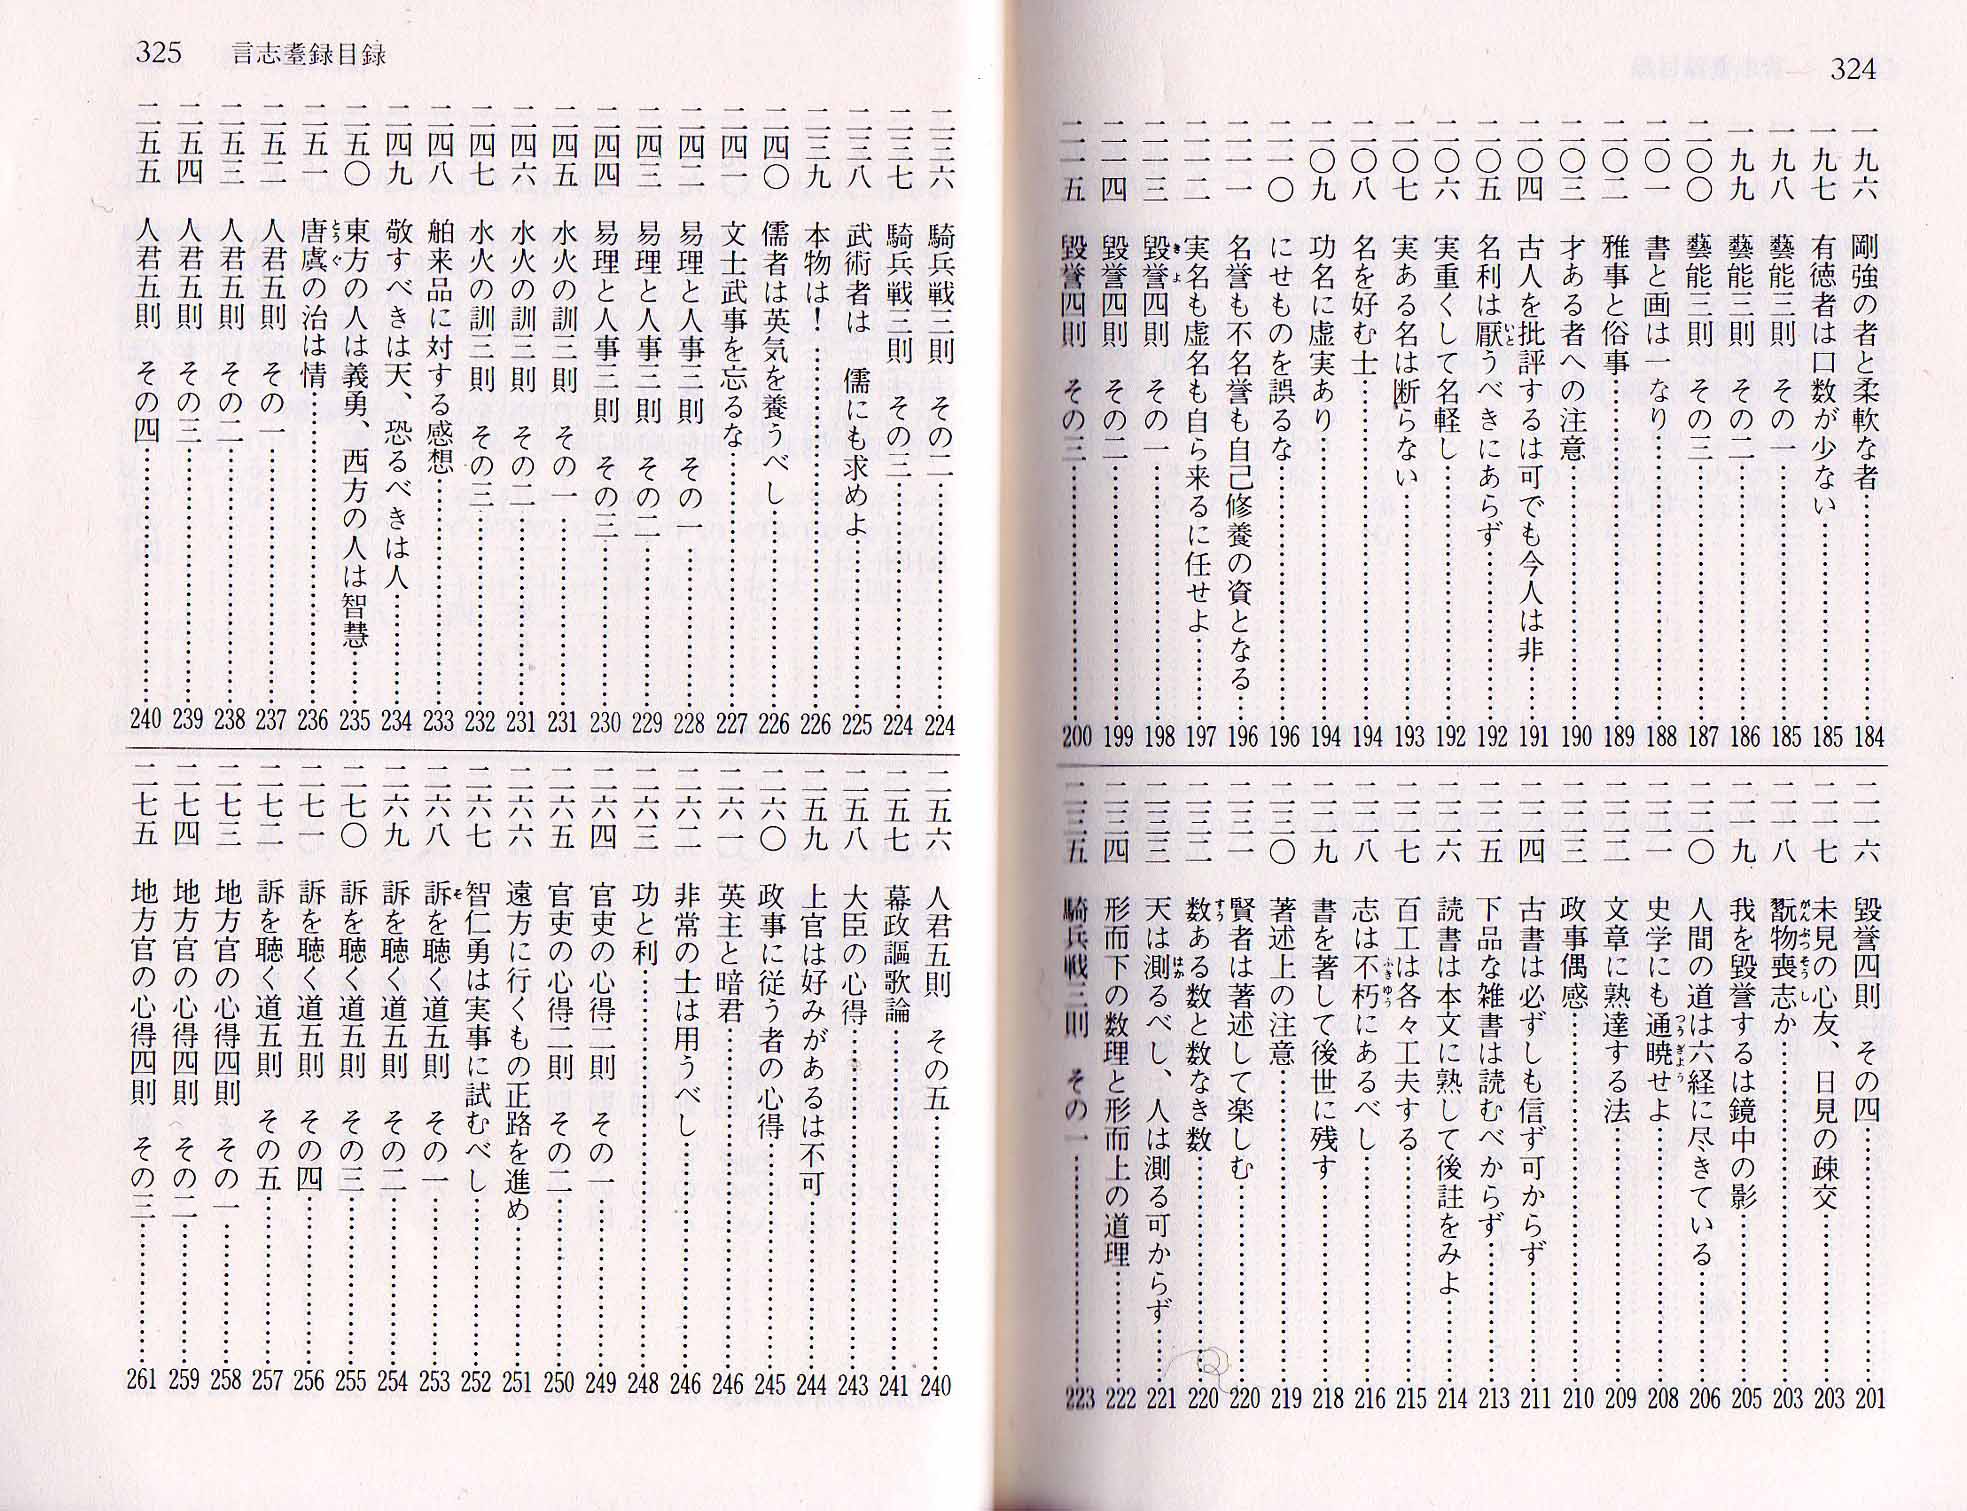 324
一九六 剛強の者と柔軟な者……184
一九七 有徳者は口数が少ない……185
一九八 藝能三則 その一……185
一九九 藝能三則 その二……186
二〇〇 藝能三則 その三……187
二〇一 書と画は一なり……188
二〇二 雅事と俗事……189
二〇三 才ある者への注意……190
二〇四 古人を批評するは可でも今人は非……191
二〇五 名利は厭うべきにあらず……192
二〇六 実重くして名軽し……192
二〇七 実ある名は断らない……193
二〇八 名を好む士……194
二〇九 功名に虚実あり……194
二一〇 にせものを誤るな……196
二一一 名誉も不名誉も自己修養の資となる……196
二一二 実名も虚名も自ら来るに任せよ……197
二一三 毀誉四則 その一……198
二一四 毀誉四則 その二……199
二一五 毀誉四則 その三……200
二一六 毀誉四則 その四……201
二一七 未見の心友、日見の疎交……203
二一八 翫物喪志か……203
二一九 我を毀誉するは鏡中の影……205
二二〇 人間の道は六経に尽きている……206
二二一 史学にも通暁せよ……208
二二二 文章に熟達する法……209
二二三 政事偶感……210
二二四 古書は必ずしも信ず可からず……211
二二五 下品な雑書は読むべからず……213
二二六 読書は本文に熟して後註をみよ……214
二二七 百工は各々工夫する……215
二二八 志は不朽にあるべし……216
二二九 書を著して後世に残す……218
二三〇 著述上の注意……219
二三一 賢者は著述して楽しむ……220
二三二 数ある数と数なき数……220
二三三 天は測るべし、人は測る可からず……221
二三四 形而下の数理と形而上の道理……222
二三五 騎兵戦三則 その一……223
325 言志耋録目録
二三六 騎兵戦三則 その二……224
二三七 騎兵戦三則 その三……224
二三八 武術者は 儒にも求めよ……225
二三九 本物は！……226
二四〇 儒者は英気を養うべし……226
二四一 文士武事を忘るな……227
二四二 易理と人事三則 その一……228
二四三 易理と人事三則 その二……229
二四四 易理と人事三則 その三……230
二四五 水火の訓三則 その一……231
二四六 水火の訓三則 その二……231
二四七 水火の訓三則 その三……232
二四八 舶来品に対する感想……233
二四九 敬すべきは天、恐るべきは人……234
二五〇 東方の人は義勇、西方の人は智慧……235
二五一 唐虞の治は情……236
二五二 人君五則 その一……237
二五三 人君五則 その二……238
二五四 人君五則 その三……239
二五五 人君五則 その四……240
二五六 人君五則 その五……240
二五七 幕政謳歌論……241
二五八 大臣の心得……243
二五九 上官は好みがあるは不可……244
二六〇 政事に従う者の心得……245
二六一 英主と暗君……246
二六二 非常の士は用うべし……246
二六三 功と利……248
二六四 官吏の心得二則 その一……249
二六五 官吏の心得二則 その二……250
二六六 遠方に行くもの正路を進め……251
二六七 智仁勇は実事に試むべし……252
二六八 訴を聴く道五則 その一……253
二六九 訴を聴く道五則 その二……254
二七〇 訴を聴く道五則 その三……255
二七一 訴を聴く道五則 その四……256
二七二 訴を聴く道五則 その五……257
二七三 地方官の心得四則 その一……258
二七四 地方官の心得四則 その二……259
二七五 地方官の心得四則 その三……261